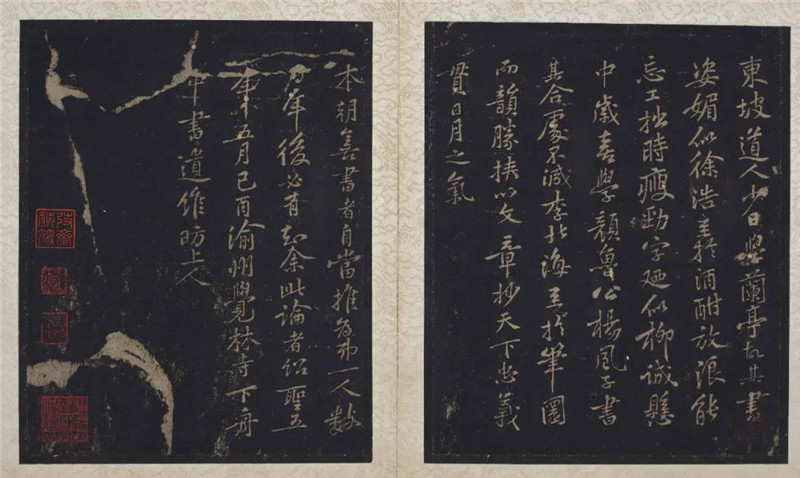 東坡道人少日學蘭亭故其書
姿媚似徐浩至於酒酣放浪能
忘工拙時瘦勁字迺似柳誠懸
中歲喜學顏魯公楊風子書
其合處不減李北海至於筆圜
而韻勝挾以文章妙天下忠義
貫日月之氣
本朝善書者自當推為第一人數
百年後必有知余此論者紹聖五
年五月己酉渝州覺林寺下舟
中書遺維昉上人